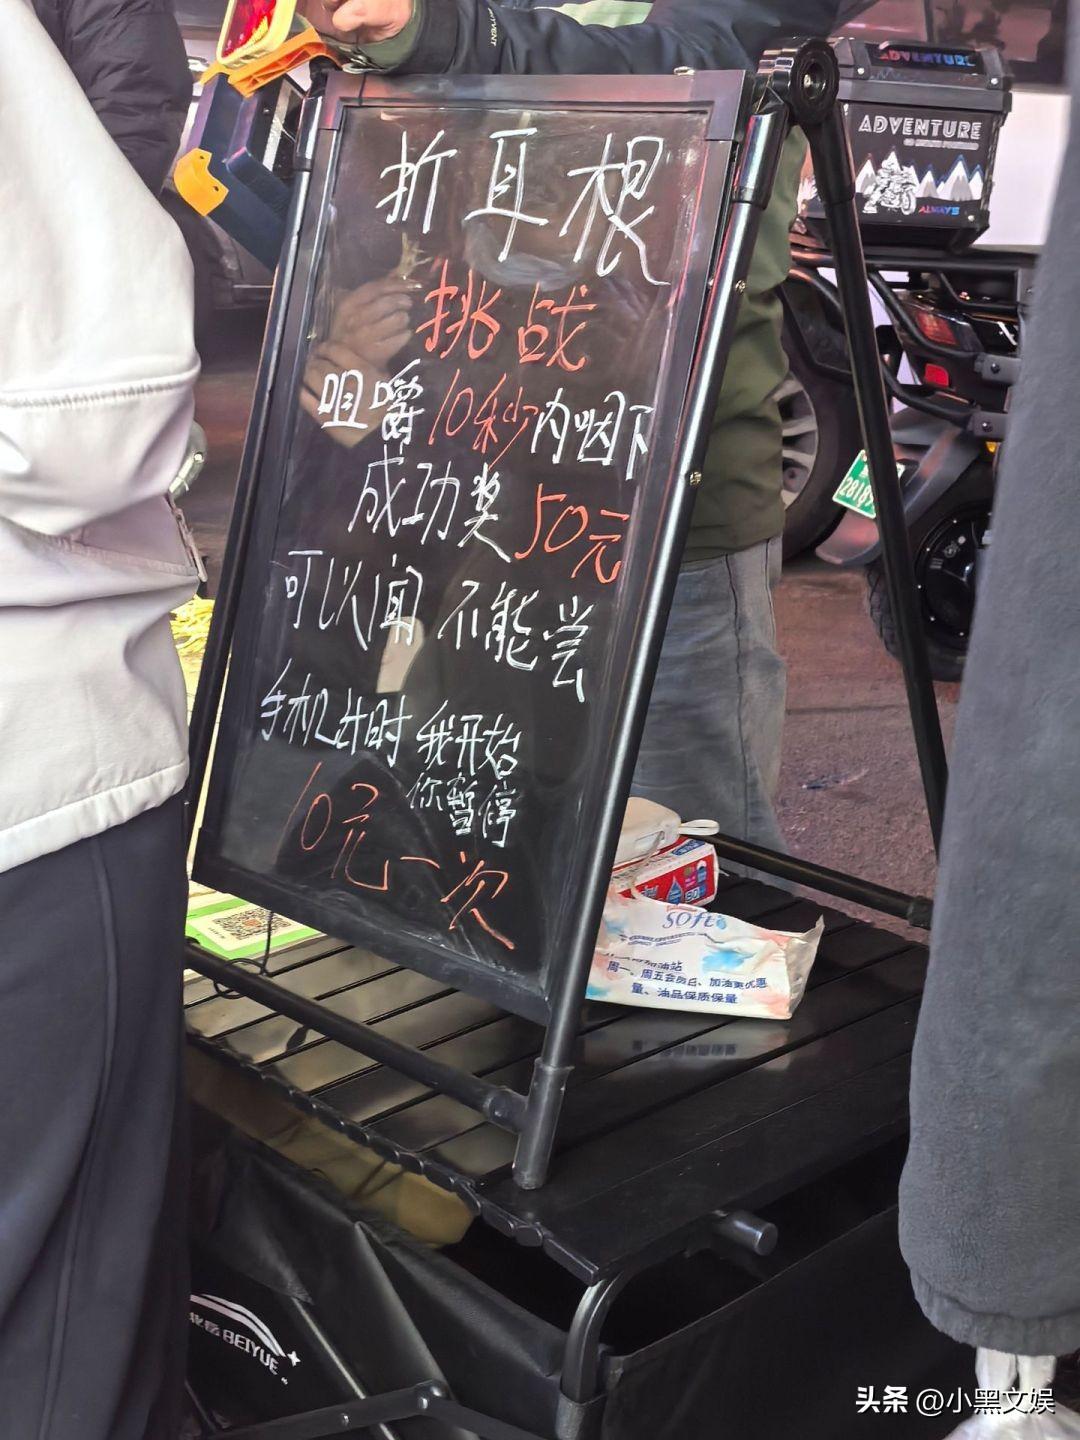 折耳根
挑战
咀嚼10秒内咽下
成功奖50元
可以闻 不能尝
手机计时 我开始
你暂停
10元一次
ADVENTURE
ADVENTURE
ALWAYS
soft
加油站
周一、周五会员日、加油更优惠
量、油品保质保量
BEIYUE
头条 @小黑文娱